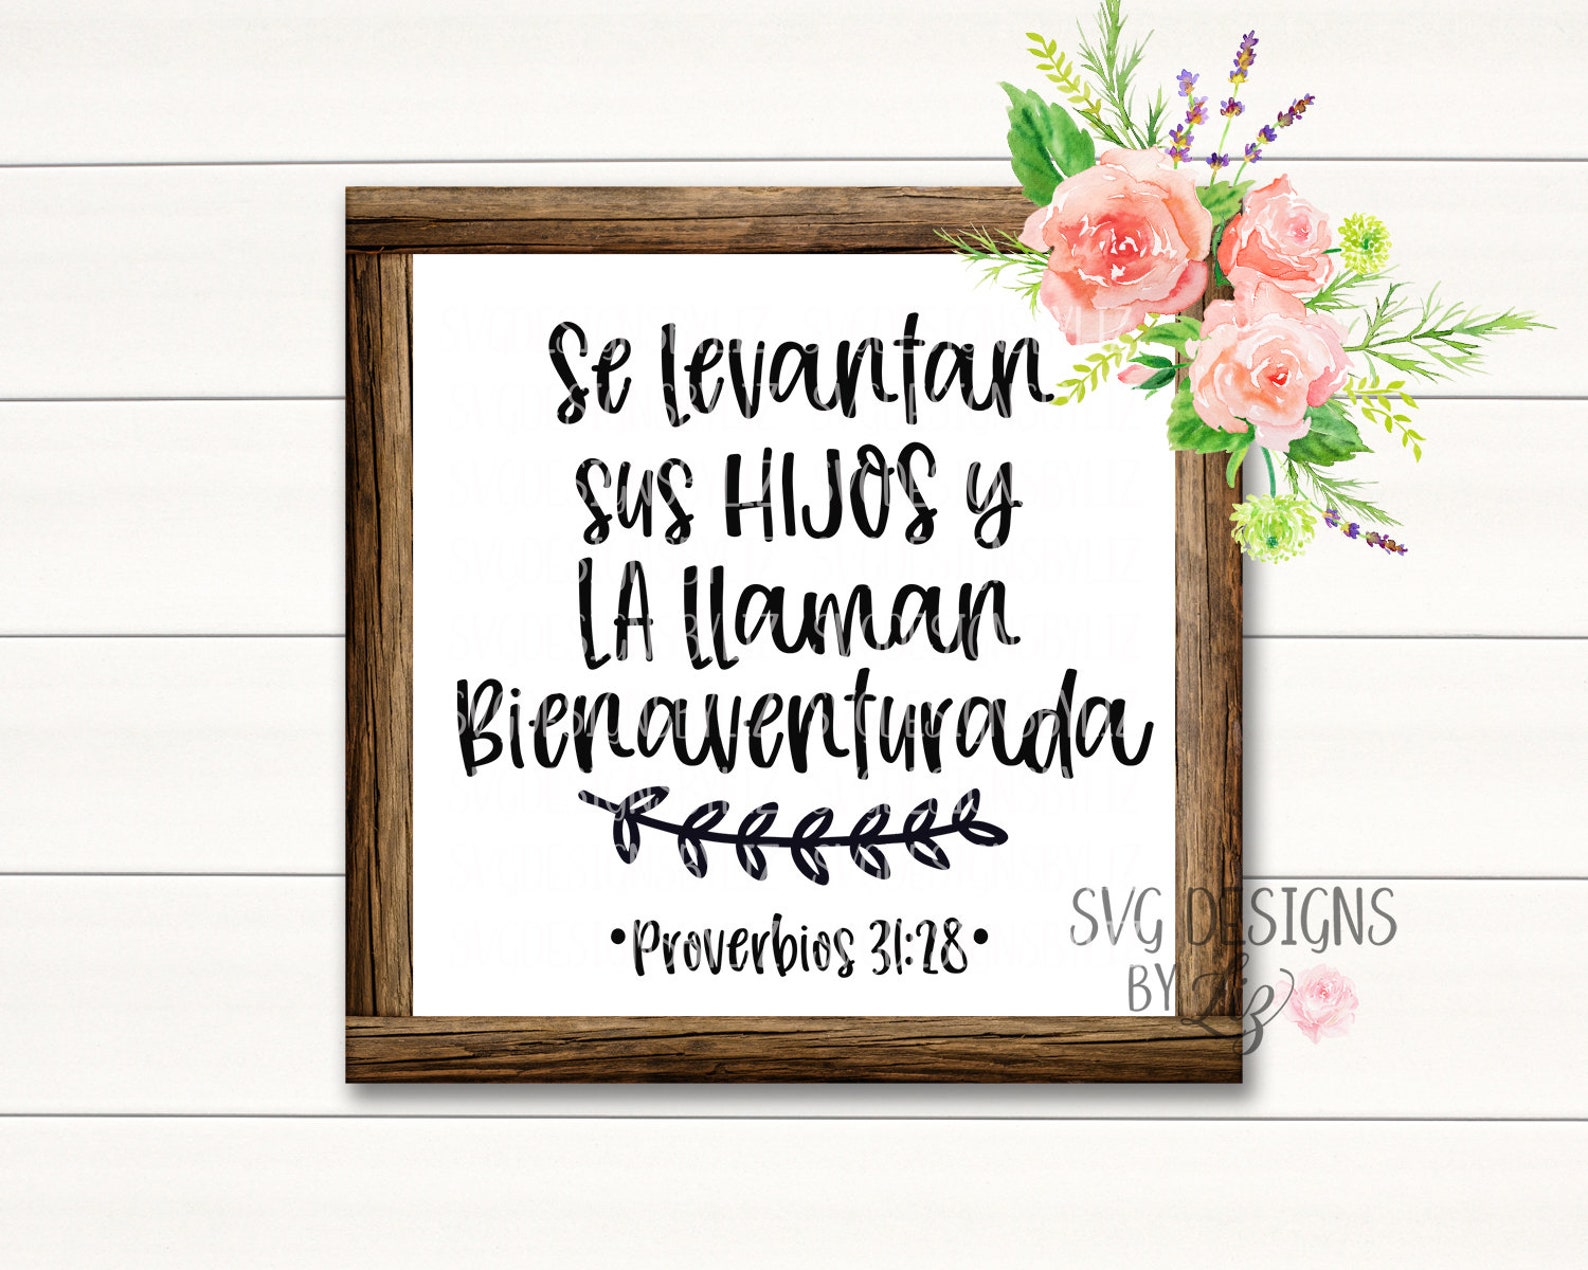 Se Levantan
sus HIJOS y
LA LLaman
Bienaventurada
•Proverbios 31:28•
SVG DESIGNS
BY Liz